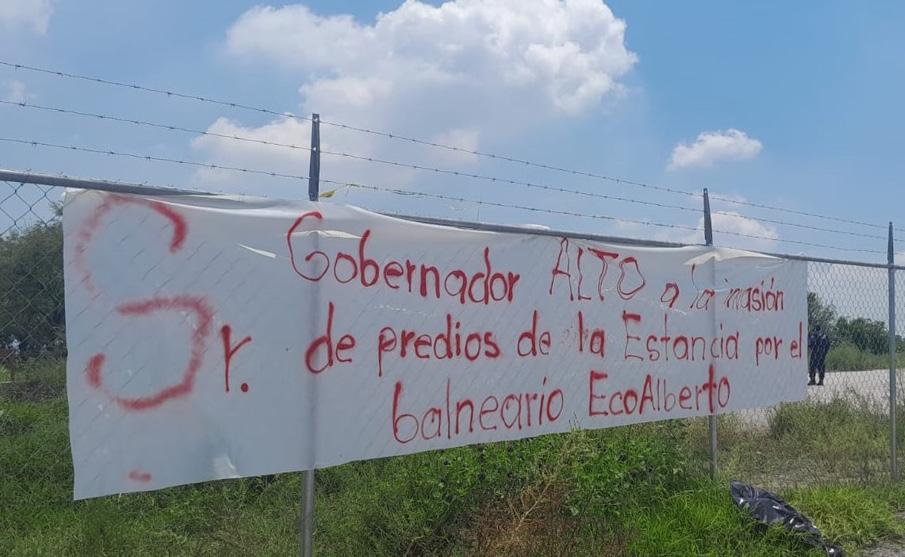 Sr. Gobernador ALTO a la
de predios de la Estancia por el
balneario EcoAlberto